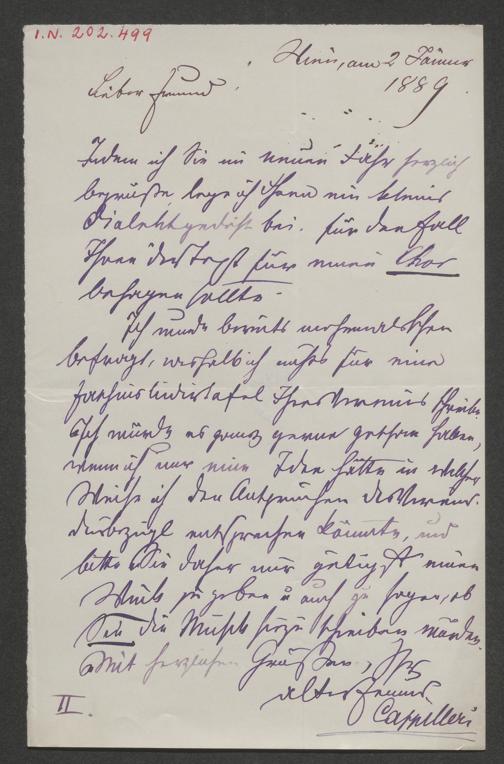 I.N. 202.499
Wien, am 2 Jänner
1889.
Lieber Freund
Indem ich Sie im neuen Jahr herzlich
begrüße, lege ich Ihnen ein kleines
Dialektgedicht bei. für den Fall
Ihnen der Text für einen Chor
behagen sollte.
Ich wurde bereits mehrmals schon
befragt, weshalb ich nichts für eine
Faschingsliedertafel Ihres Vereines schreibe.
Ich würde es ganz gerne gethan haben,
wenn ich nur eine Idee hätte in welcher
Weise ich den Ansprüchen des Vereines
diesbezügl entsprechen könnte, und
bitte Sie daher mir gütigst einen
Wink zu geben u auch zu sagen, ob
Sie die Musik hiezu schreiben würden.
Mit herzlichen Grüßen, Ihr
alter Freund
Cappilleri
II.